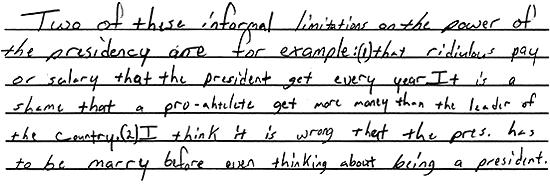 Two of these informal limitations on the power of
the presidency are for example:(1)that ridiulous pay
or salary that the president get every year It is a
shame that a pro-ahtelete get more money than the leader of
the country.(2)I think it is wrong that the pres. has
to be marry before even thinking about being a president.